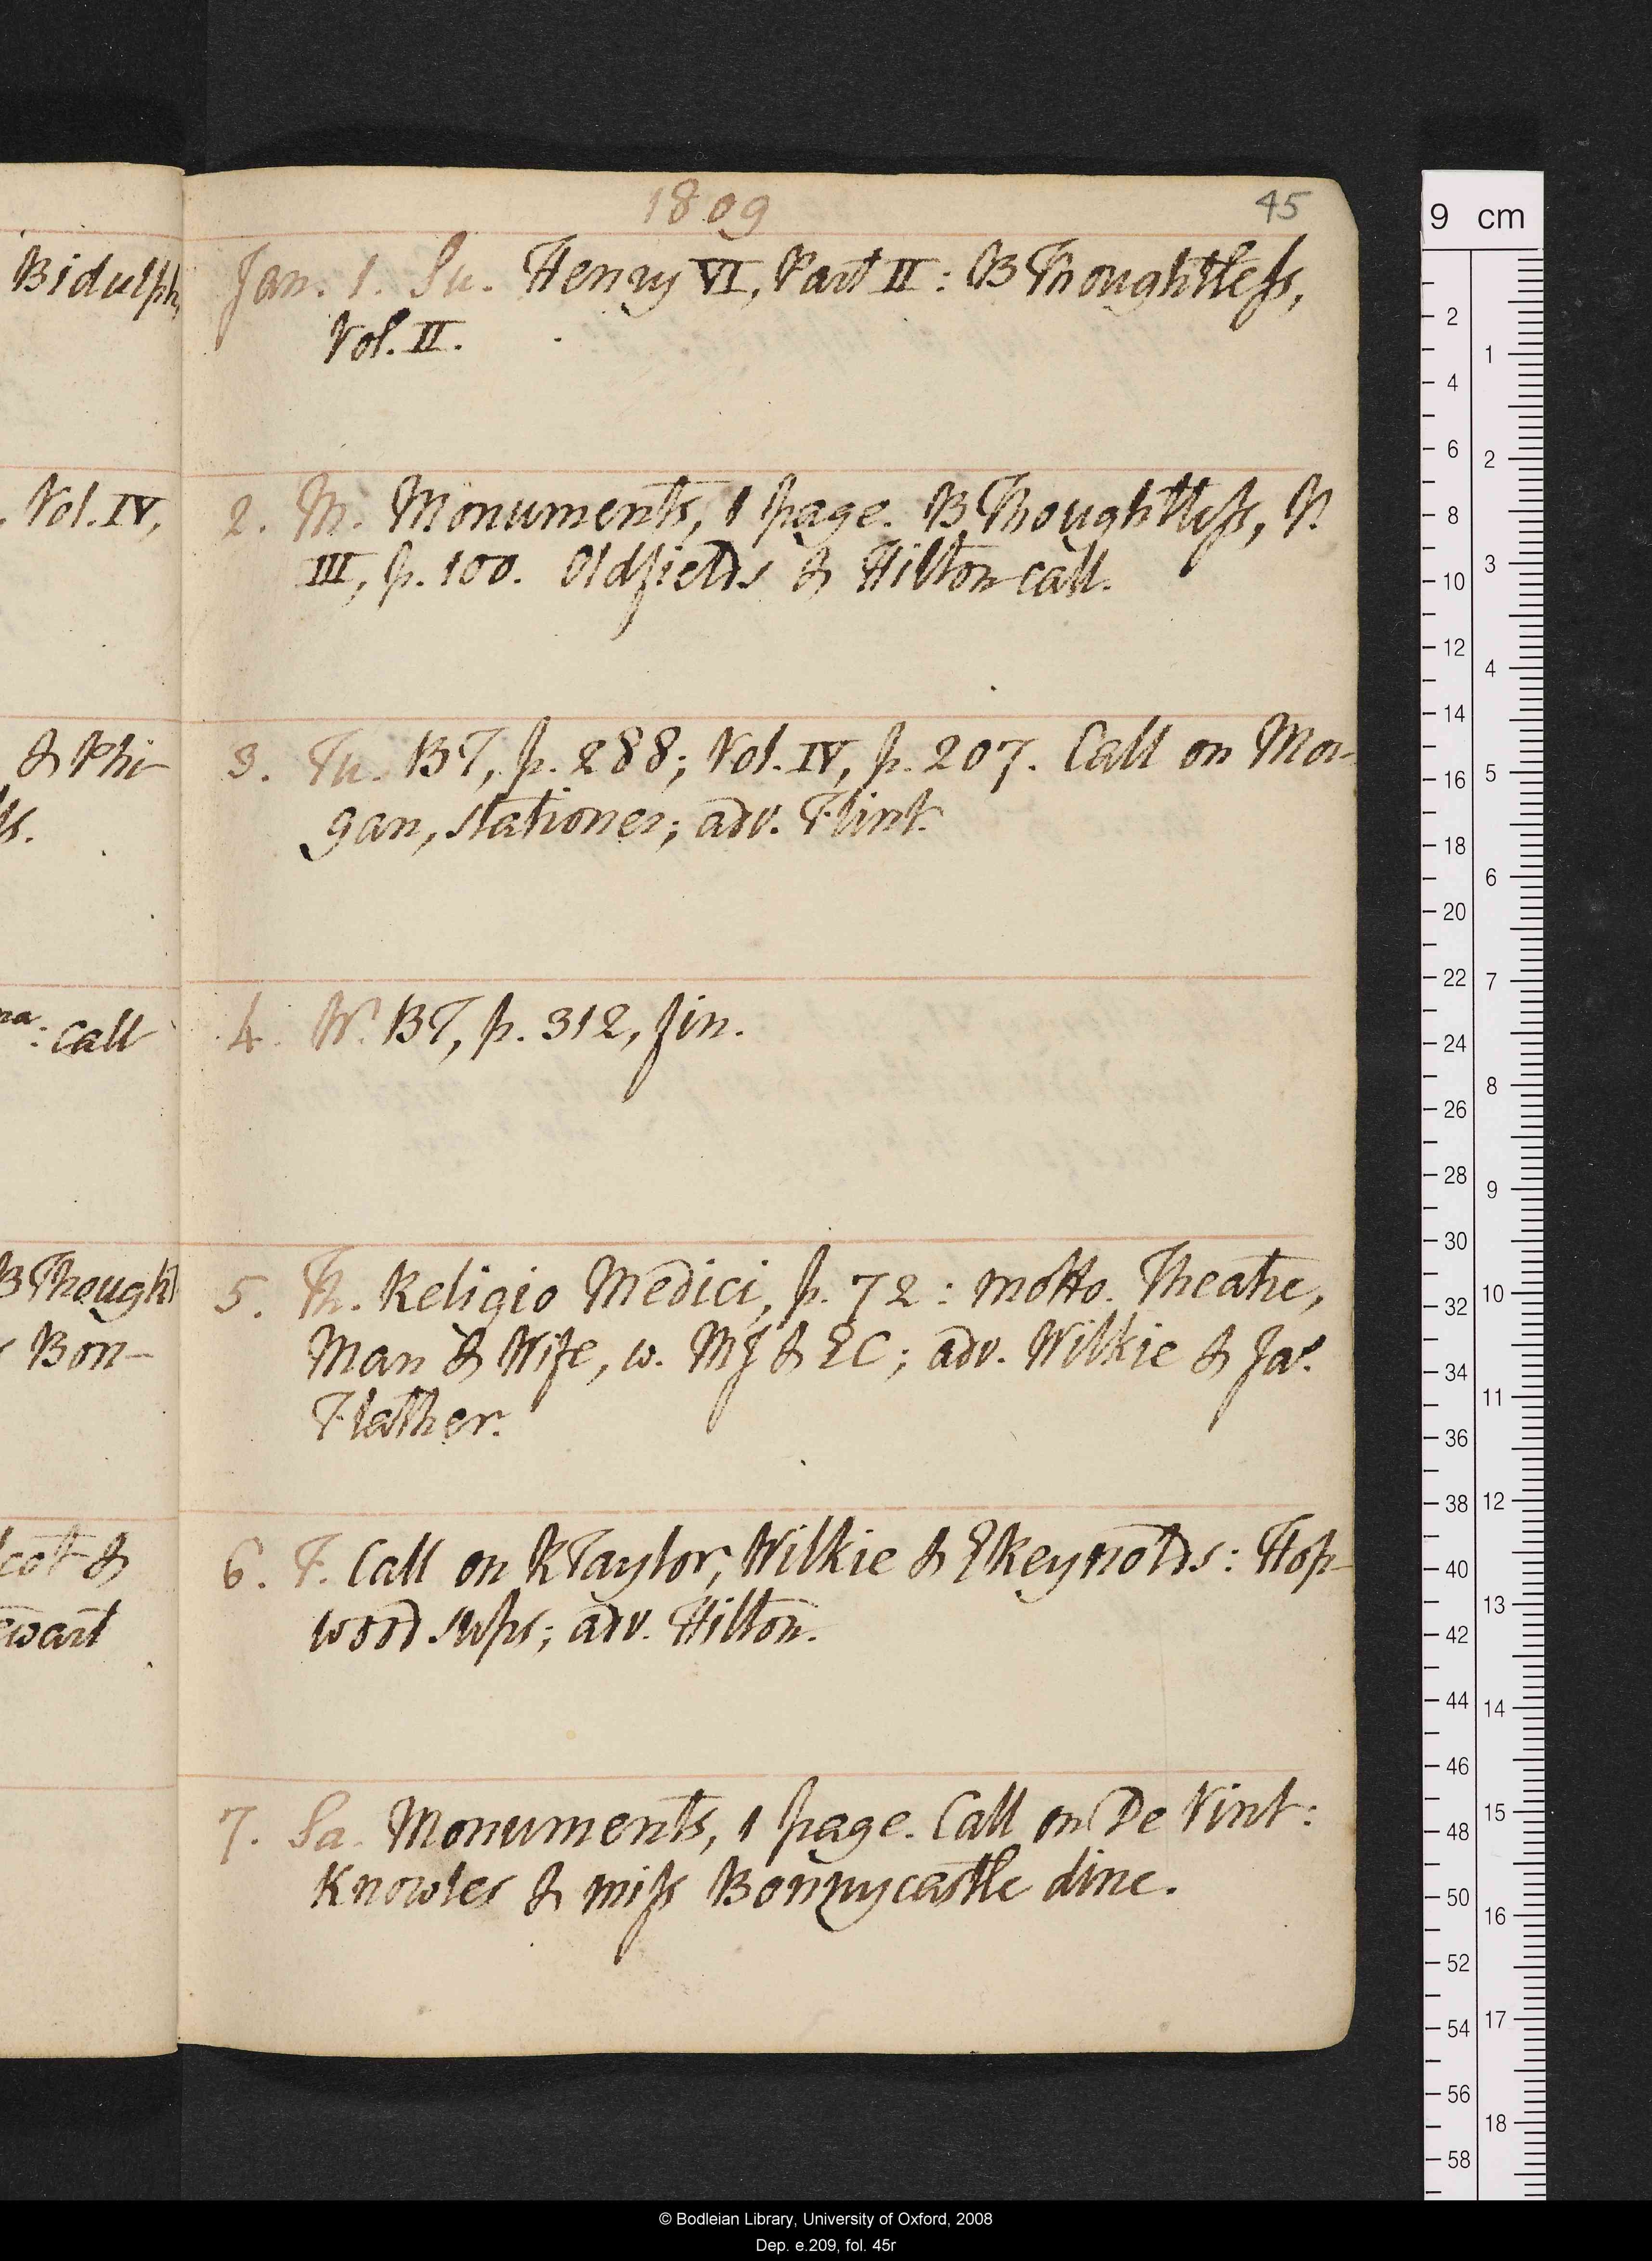 1809
45
Bidulph,
Jan. 1. Su. Henry VI, Part II: B Thoughtless,
Vol. II.
. Vol. IV,
2. M. Monuments, 1 page. B Thoughtless, V.
III, p. 100. Oldfields & Hilton call.
& Phi-
3. Tu. BT, p. 288; Vol. IV, p. 207. Call on Mor-
gan, stationer; adv. Flint.
call
4. W. BT, p. 312, fin.
B Though
5. Th. Religio Medici, p. 72: motto. Theatre,
Bon-
Man & Wife, w. MJ & EC; adv. Wilkie & Jas.
Flather.
&
6. F. Call on RTaylor, Wilkie & EReynolds: Hop-
wood sups; adv. Hilton.
7. Sa. Monuments, 1 page. Call on De Vint:
Knowles & miss Bonnycastle dine.
9 cm
2
4
6
8
10
12
14
16
18
20
22
24
26
28
30
32
34
36
38
40
42
44
46
48
50
52
54
56
58
1
2
3
4
5
6
7
8
9
10
11
12
13
14
15
16
17
18
© Bodleian Library, University of Oxford, 2008
Dep. e.209, fol. 45r